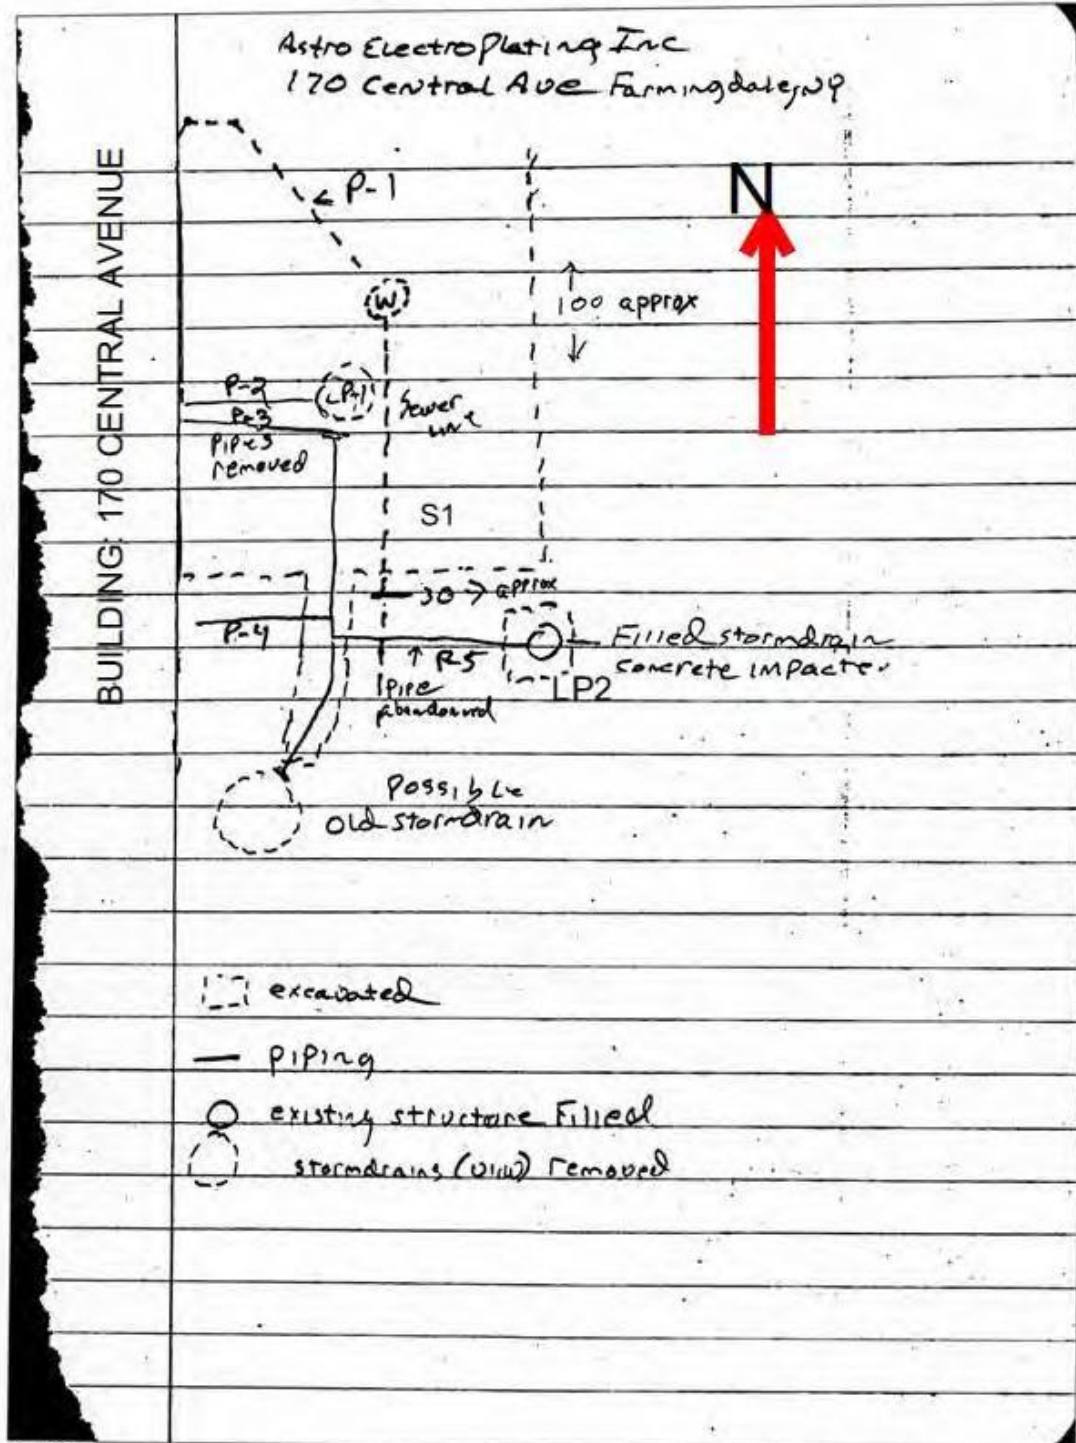 Astro ElectroPlating Inc
170 Central Ave Farmingdale, NY
BUILDING: 170 CENTRAL AVENUE
N
← P-1
W
↑
100 approx
↓
P-2
LP-1
Sewer
line
P-3
Pipes
removed
S1
30 → approx
P-4
↑ P-5
Pipe
abandoned
LP2
Filled stormdrain
concrete impacted
Possible
Old stormdrain
excavated
piping
existing structure Filled
stormdrains removed